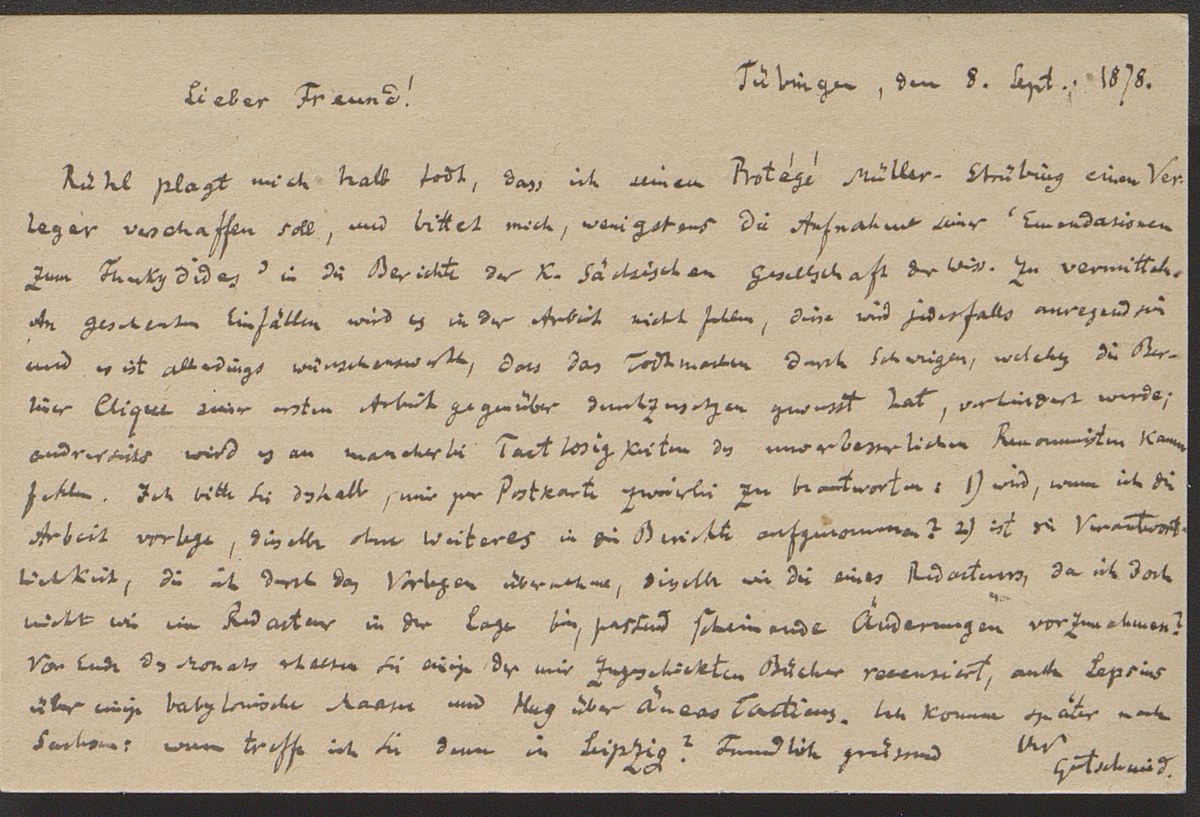 Tübingen, den 8. Sept. 1878.
Lieber Freund!
Rühl plagt mich halb todt, dass ich seinem Protégé Müller-Strübing einen Ver-
leger verschaffen soll, und bittet mich, wenigstens die Aufnahme seiner ‘Emendationen
zum Thukydides’ in die Berichte der K. Sächsischen Gesellschaft der Wiss. zu vermitteln.
An gescheuten Einfällen wird es in der Arbeit nicht fehlen, diese wird jedesfalls anregend sein
und es ist allerdings wünschenswerth, dass das Todtmachen durch Schweigen, welches die Ber-
liner Clique seiner ersten Arbeit gegenüber durchzusetzen gewusst hat, verhindert werde;
andrerseits wird es an mancherlei Tactlosigkeiten des unverbesserlichen Renommisten kaum
fehlen. Ich bitte Sie deshalb, mir per Postkarte zweierlei zu beantworten: 1) wird, wenn ich die
Arbeit vorlege, dieselbe ohne Weiteres in die Berichte aufgenommen? 2) ist die Verantwort-
lichkeit, die ich durch das Vorlegen übernehme, dieselbe wie die eines Redacteurs, da ich doch
nicht wie ein Redacteur in der Lage bin, passend scheinende Änderungen vorzunehmen?
Vor Ende des Monats erhalten Sie einige der mir zugeschickten Bücher recensiert, auch Lepsius
über einige babylonische Maasse und Hug über Äneas Tacticus. Ich komme später nach
Sachsen: wann treffe ich Sie denn in Leipzig? Freundlich grüssend Ihr
Gutschmid.